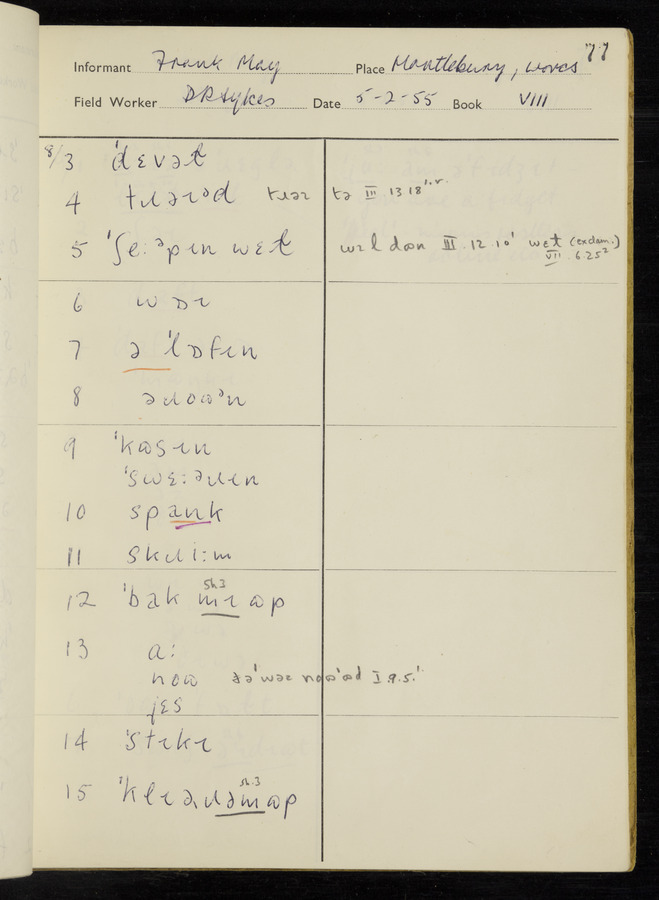 77
Informant Frank May Place Mantlebury, worcs
Field Worker DRSykes Date 5-2-55 Book VIII
8/3 ˈdɛvət
4 tɹɪəd tɪəɹ tə III 13 18
5 ˈʃeːᵊpɪn wɛt wɛl dən III.12.10 wɛt (exclam.)
VII.6.25²
6 wɒɪ
7 ə ˈlɒfɪn
8 əɹoʊn
9 ˈkʊsɪn
ˈswɛːəɹɪn
10 spaŋk
11 skɹiːm
sh.3
12 ˈbak mɪ ʊp
13 aː
noʊ I.9.5
jɛs
14 ˈstɪkɪ
sh.3
15 ˈklɪəɹəmʊp